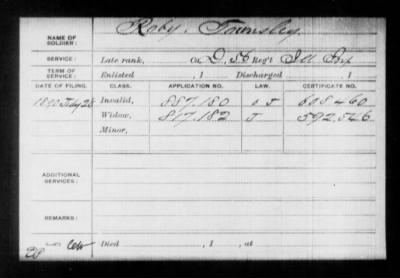 NAME OF SOLDIER: Roby, Townsley
SERVICE: Late rank, Co. D, 56 Reg't Ill Inf
TERM OF SERVICE: Enlisted , 1 Discharged , 1
DATE OF FILING. CLASS. APPLICATION NO. LAW. CERTIFICATE NO.
Invalid, 887.180 608.460
Widow, 817.182 J 592.546
Minor,
ADDITIONAL SERVICES:
REMARKS:
Died , 1 , at